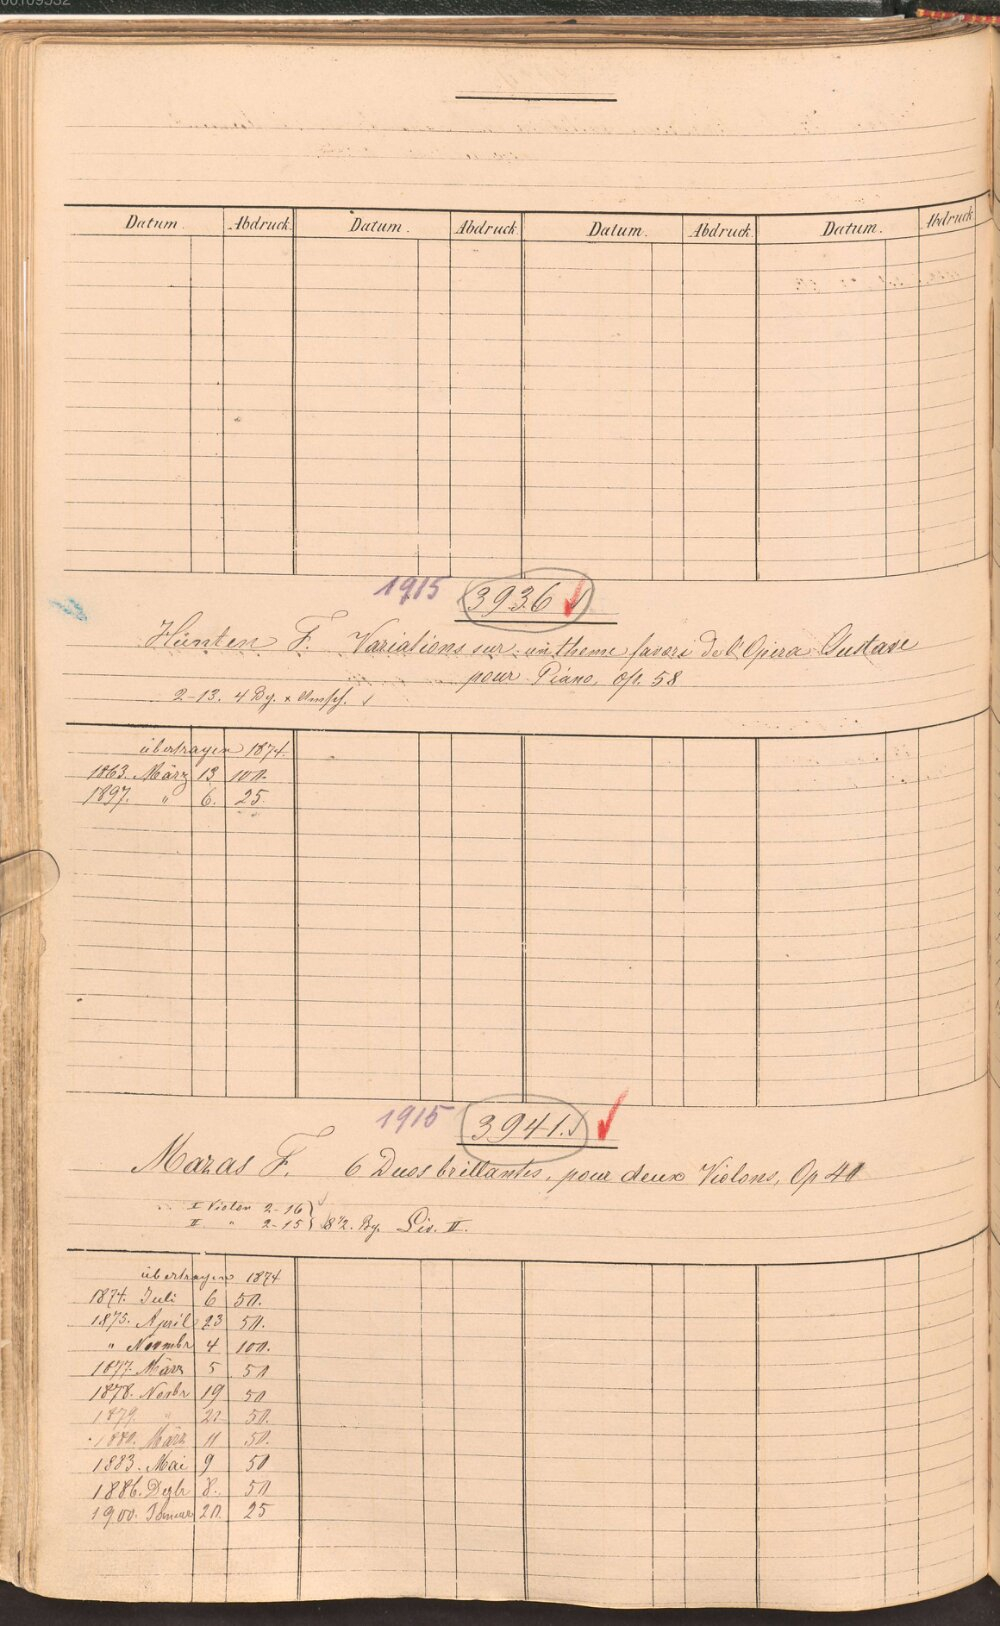 Datum. Abdruck. Datum. Abdruck Datum. Abdruck. Datum. Abdruck
1915 3936
Hünten F. Variations sur un theme favori de l'Opera Gustave
pour Piano. Op. 58
2-13. 4 Bg. + Umschl.
übertragen 1874.
1863. März 13 100.
1897. " 6. 25.
1915 3941.
Mazas F. 6 Duos brillantes, pour deux Violons, Op 40
I Violon 2-16
II " 2-15 8½. Bg. Liv. II.
übertragen 1874
1874. Juli 6 50.
1875. April 23 50.
" Novmbr 4 100.
1877. März 5 50
1878. Novbr 19 50
1879. " 21 50.
1880. März 11 50.
1883. Mai 9 50
1886. Dezbr 8. 50
1900. Januar 20. 25